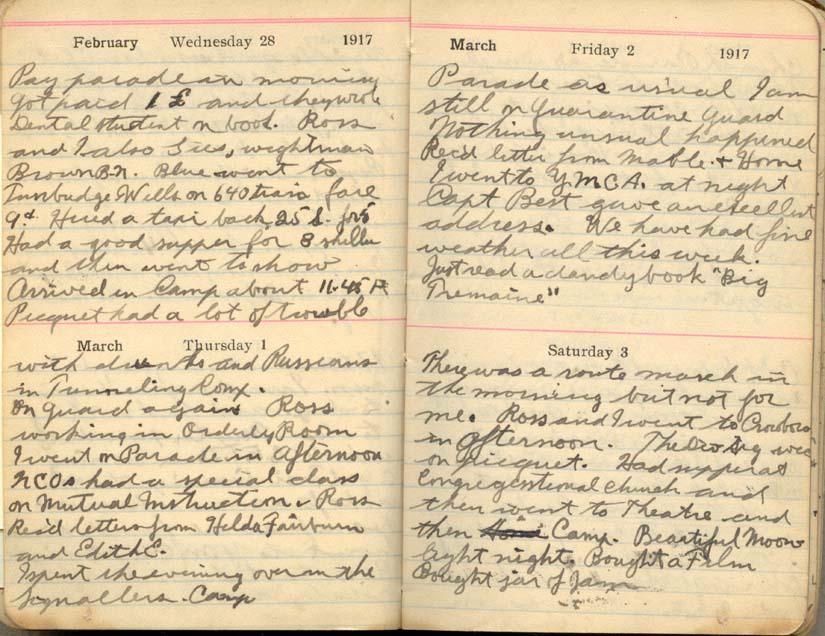 February Wednesday 28 1917
Pay parade in morning
got paid 1 £ and they wrote
Dental student on book. Ross
and I also Sies, wightman
Brown B.N. Blue went to
Tunbudge Wells on 640 train fare
9d. Hired a taxi back 25 S. for 5
Had a good supper for 3 shillin
and then went to show
Arrived in Camp about 11.45 P
Picquet had a lot of trouble
March Thursday 1
with drunks and Russians
in Tunneling Comx.
On Guard again Ross
working in Orderly Room
I went on Parade in afternoon
NCOs had a special class
on Mutual Instruction. Ross
Rec'd letters from Hilda Fairburn
and Edith E.
I spent the evening over in the
Signallers. Camp
March Friday 2 1917
Parade as usual I am
still on Quarantine Guard
Nothing unusual happened
Rec'd letter from Mable. + Home
I went to Y.M.C.A. at night
Capt Best gave an excellent
address. We have had fine
weather all this week.
Just read a dandy book "Big
Tremaine"
Saturday 3
There was a route march in
the morning but not for
me. Ross and I went to Crowboro
in afternoon. The was
on picquet. Had supper at
Congregational church and
then went to Theatre and
then Home Camp. Beautiful Moon
light night. Bought a Film
Bought jar of Jam